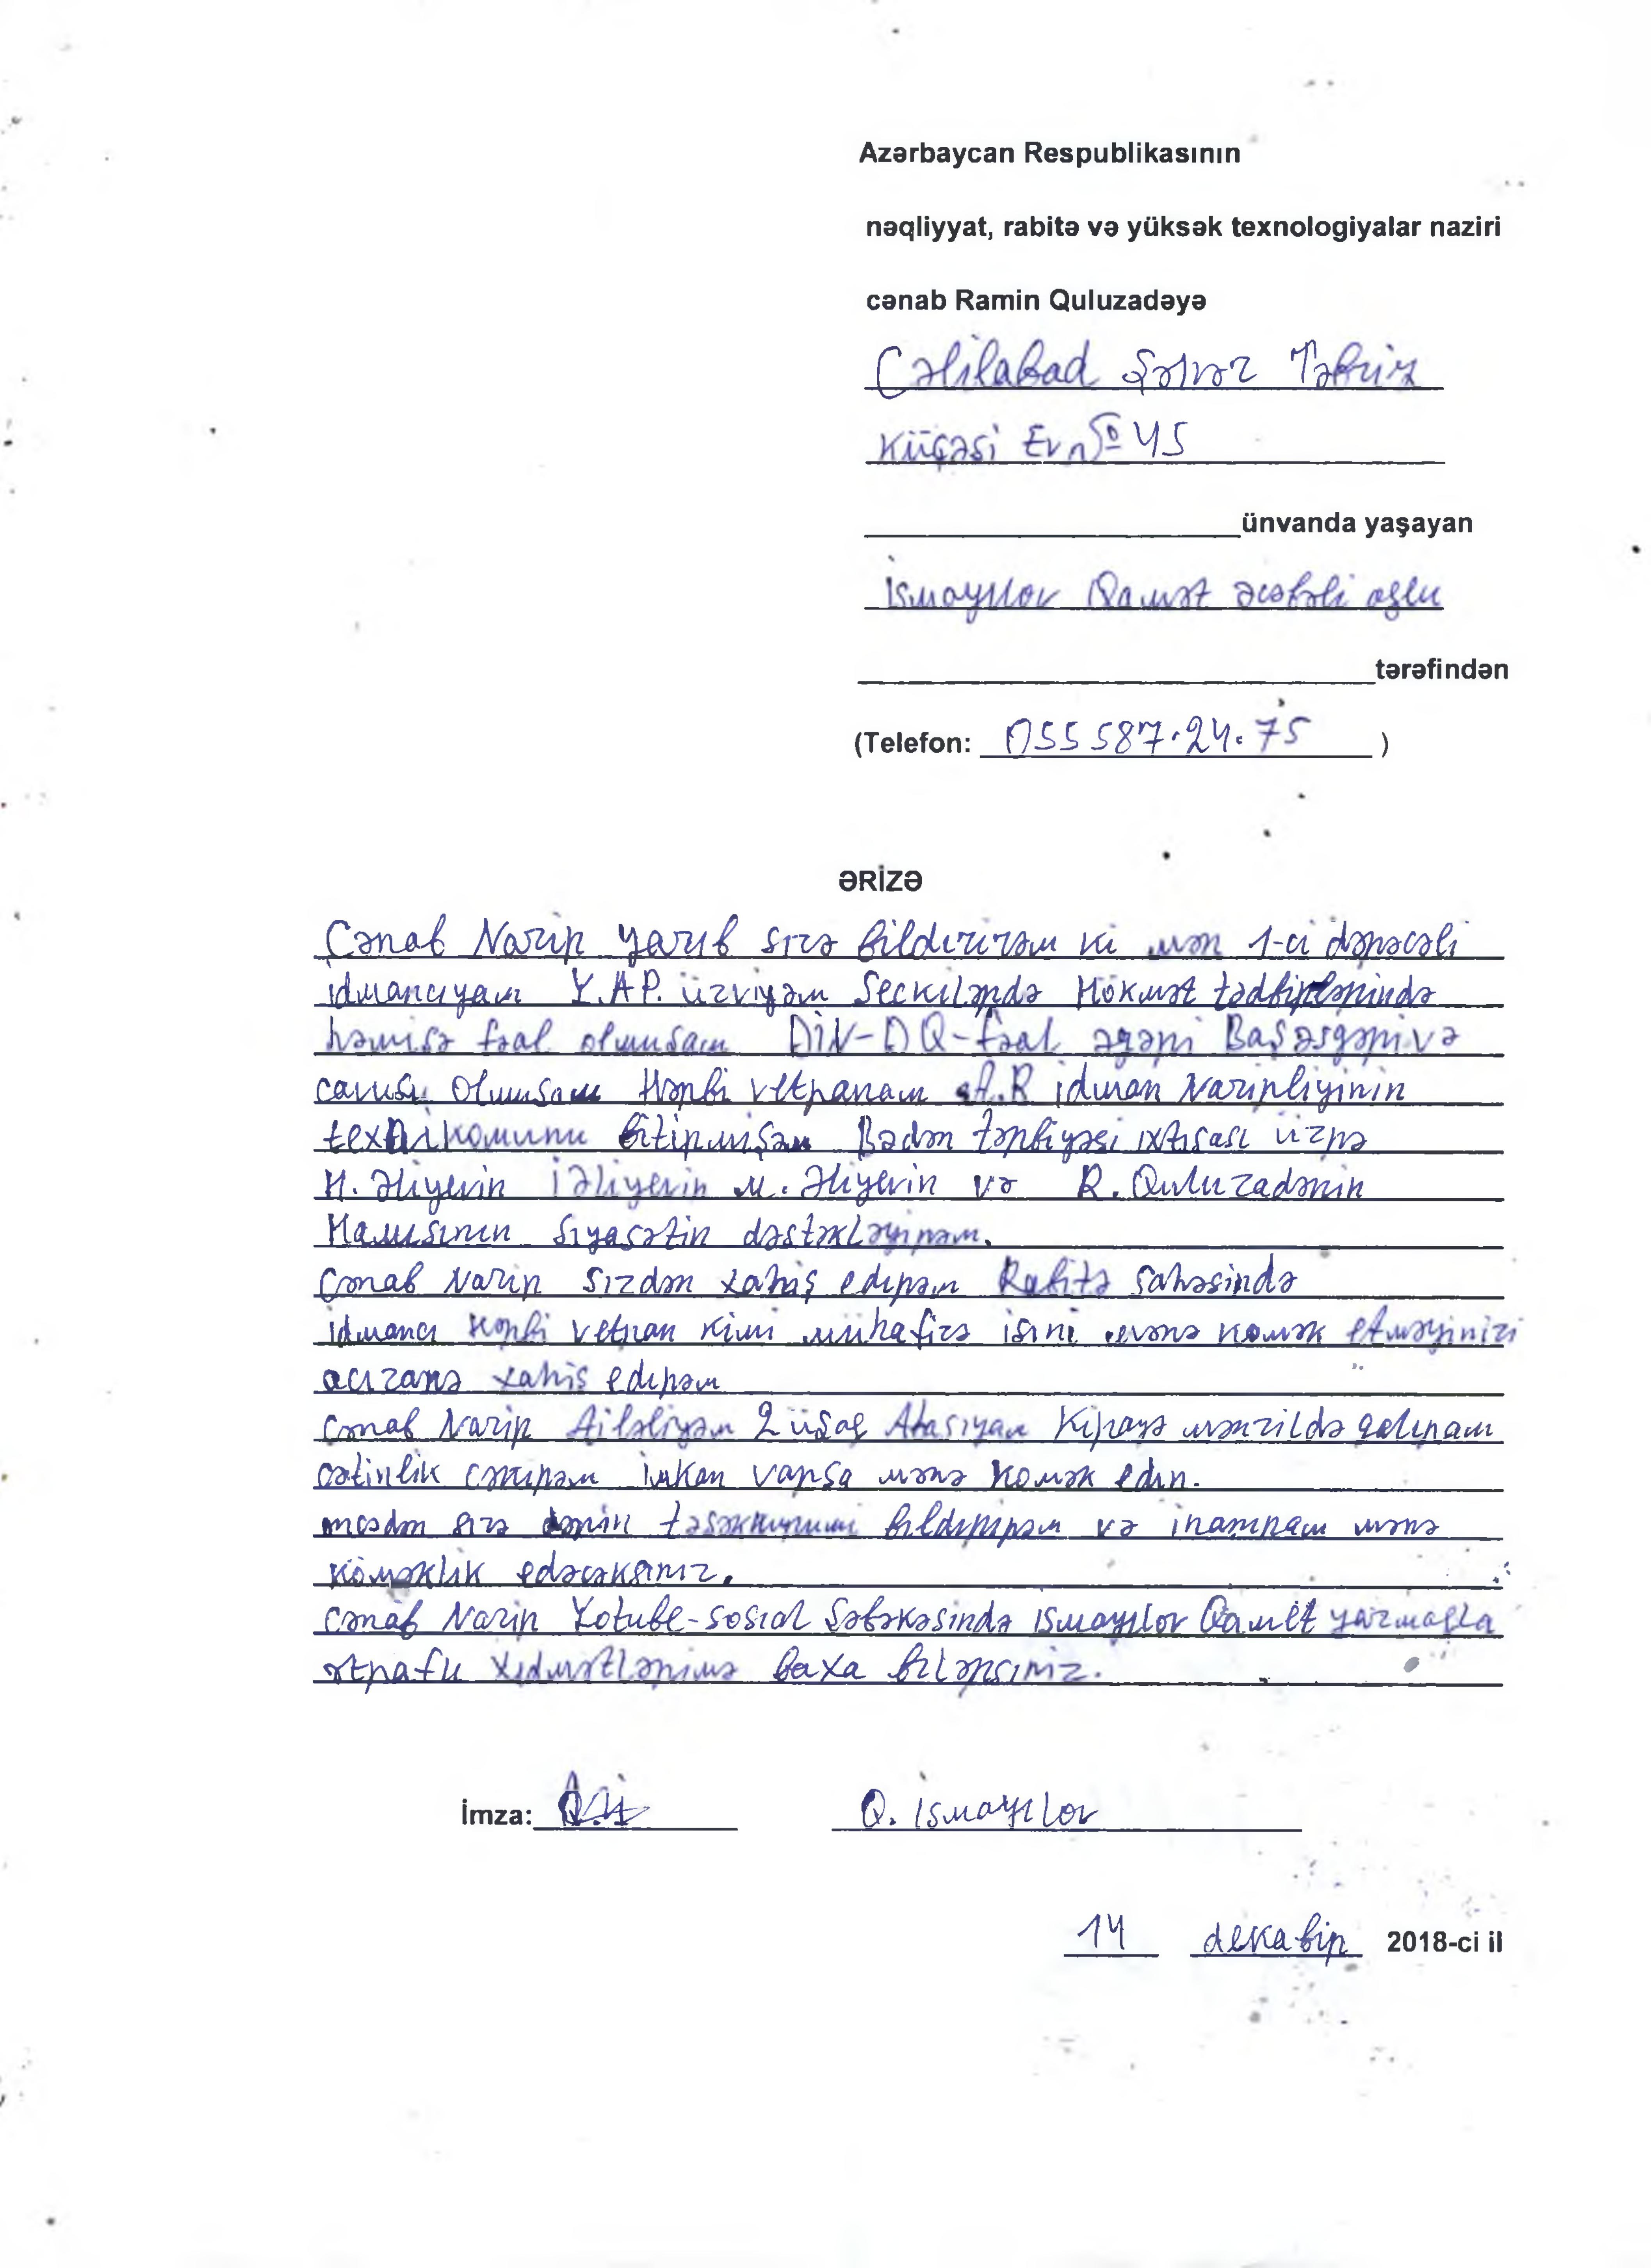 Azərbaycan Respublikasının
nəqliyyat, rabitə və yüksək texnologiyalar naziri
cənab Ramin Quluzadəyə
Cəlilabad Şəhər Təbriz
Küçəsi Ev №45
ünvanda yaşayan
İsmayılov Qamət Əcəbəli oğlu
tərəfindən
(Telefon: 055 587.24.75 )
ƏRİZƏ
Cənab Nazir yazıb sizə bildirirəm ki mən 1-ci dərəcəli
idmancıyam Y.AP. üzviyəm Seckilərdə Hökmət tədbirlərində
həmisə fəal olmusam DİN-DQ-fəal əsgəri Başəsgəri və
cavusı olmusam Hərbi vetranam A.R idman Nazirliyinin
texnikomunu bitirmişəm Bədən tərbiyəsi ixtisası üzrə
H. Əliyevin İ Əliyevin M. Əliyevin və R. Quluzadənin
Hamısının siyasətin dəstəkləyirəm.
Cənab Nazir Sizdən xahiş edirəm Rabitə sahəsində
idmancı Hərbi vetran kimi mühafizə isini mənə komək etməyinizi
acızanə xahis edirəm
Cənab Nazir Ailəliyəm 2 üsaq Atasıyam Kirayə mənzildə qalıram
cətinlik cəkirəm imkan varsa mənə Komək edin.
sizə dərin təsəkkurumu bildirirəm və inamram mənə
köməklik edəcəksiniz.
Cənab Nazir Yotube-sosial Səbəkəsində ismayılov Qamət yazmaqla
ətraflı xidmətlərimə baxa bilərsiniz.
İmza: Q. İsmayılov
14 декабір 2018-ci il